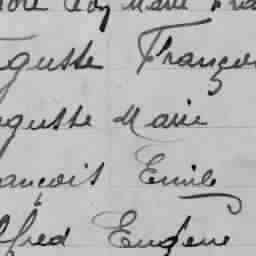 Marie
guste François
guste Marie
ançois Emile
lfred Eugène